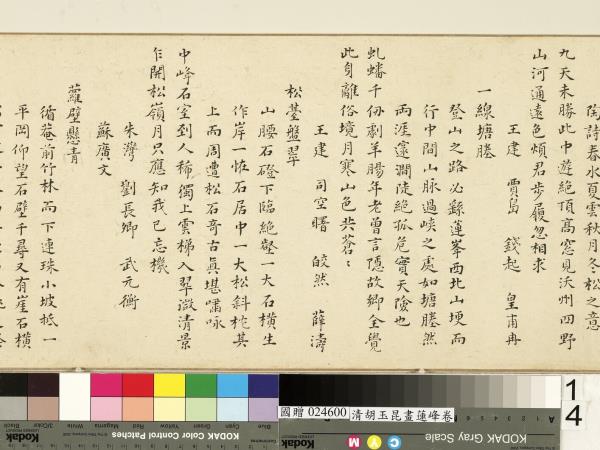 陶詩春水夏雲秋月冬松之意
九天未勝此中遊絶頂高窓見沃州四野
山河通遠色煩君步履忽相求
王建　賈島　錢起　皇甫冉
一線塘塍
登山之路必繇蓮峯西北山埂而
行中間山脉過峡之處如塘塍然
兩涯邃澗陡絶孤危實天險也
虬蟠千仞劇羊腸年老曽言隱故鄉全覺
此身離俗境月寒山色共蒼〻
王建　司空曙　皎然　薛濤
松䑓盤翠
山腰石磴下臨絶壑一大石横生
作岸一恠石居中一大松斜枕其
上而周遭松石奇古眞堪嘯咏
中峰石室到人稀獨上雲梯入翠微清景
乍開松嶺月只應知我已忘機
朱灣　劉長卿　武元衡
蘇廣文
蘿壁懸青
循菴前竹林而下連珠小坡抵一
平罔仰望石壁千尋又有崖石横
國贈 024600 清胡玉昆畫蓮峰卷
14
KODAK Color Control Patches
KODAK Gray Scale
Kodak
Kodak
Blue Cyan Green Yellow Red Magenta White 3/Color Black
C Y M